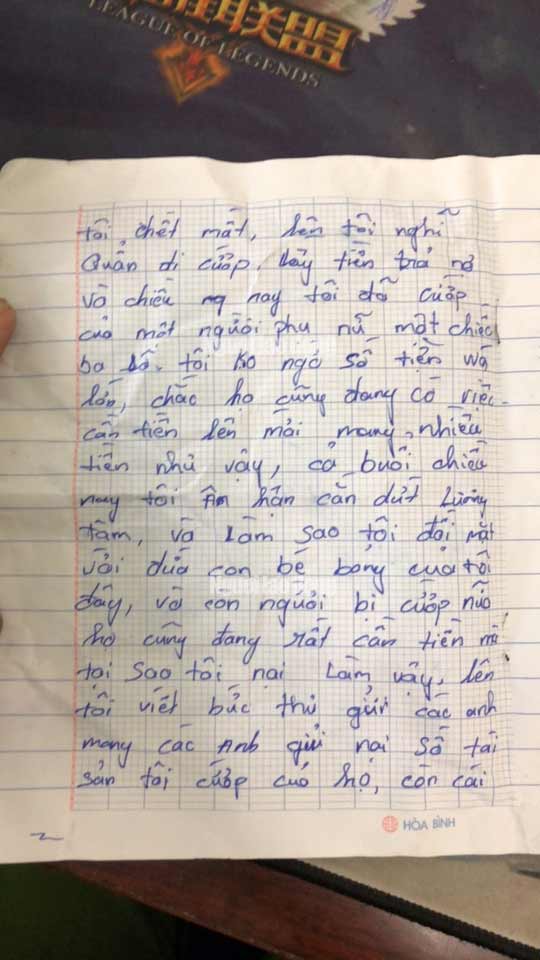 联盟
LEAGUE OF LEGENDS
tôi chết mất, lên tôi nghĩ
Quẩn đi cướp, lấy tiền trả nợ
và chiều nay tôi đã cướp
của một người phụ nữ một chiếc
ba lô. tôi ko ngờ số tiền wá
lớn, chắc họ cũng đang có việc
cần tiền lên mới mang nhiều
tiền như vậy, cả buổi chiều
nay tôi Ân hận cắn dứt Lương
tâm, và Làm sao tôi đối mặt
với đứa con bé bỏng của tôi
đây, và còn người bị cướp nữa
họ cũng đang rất cần tiền mà
tại sao tôi nại Làm vậy, lên
tôi viết bức thư gửi các anh
mong các Anh gửi nại số tài
sản tôi cướp của họ, còn cái
2
HÒA BÌNH